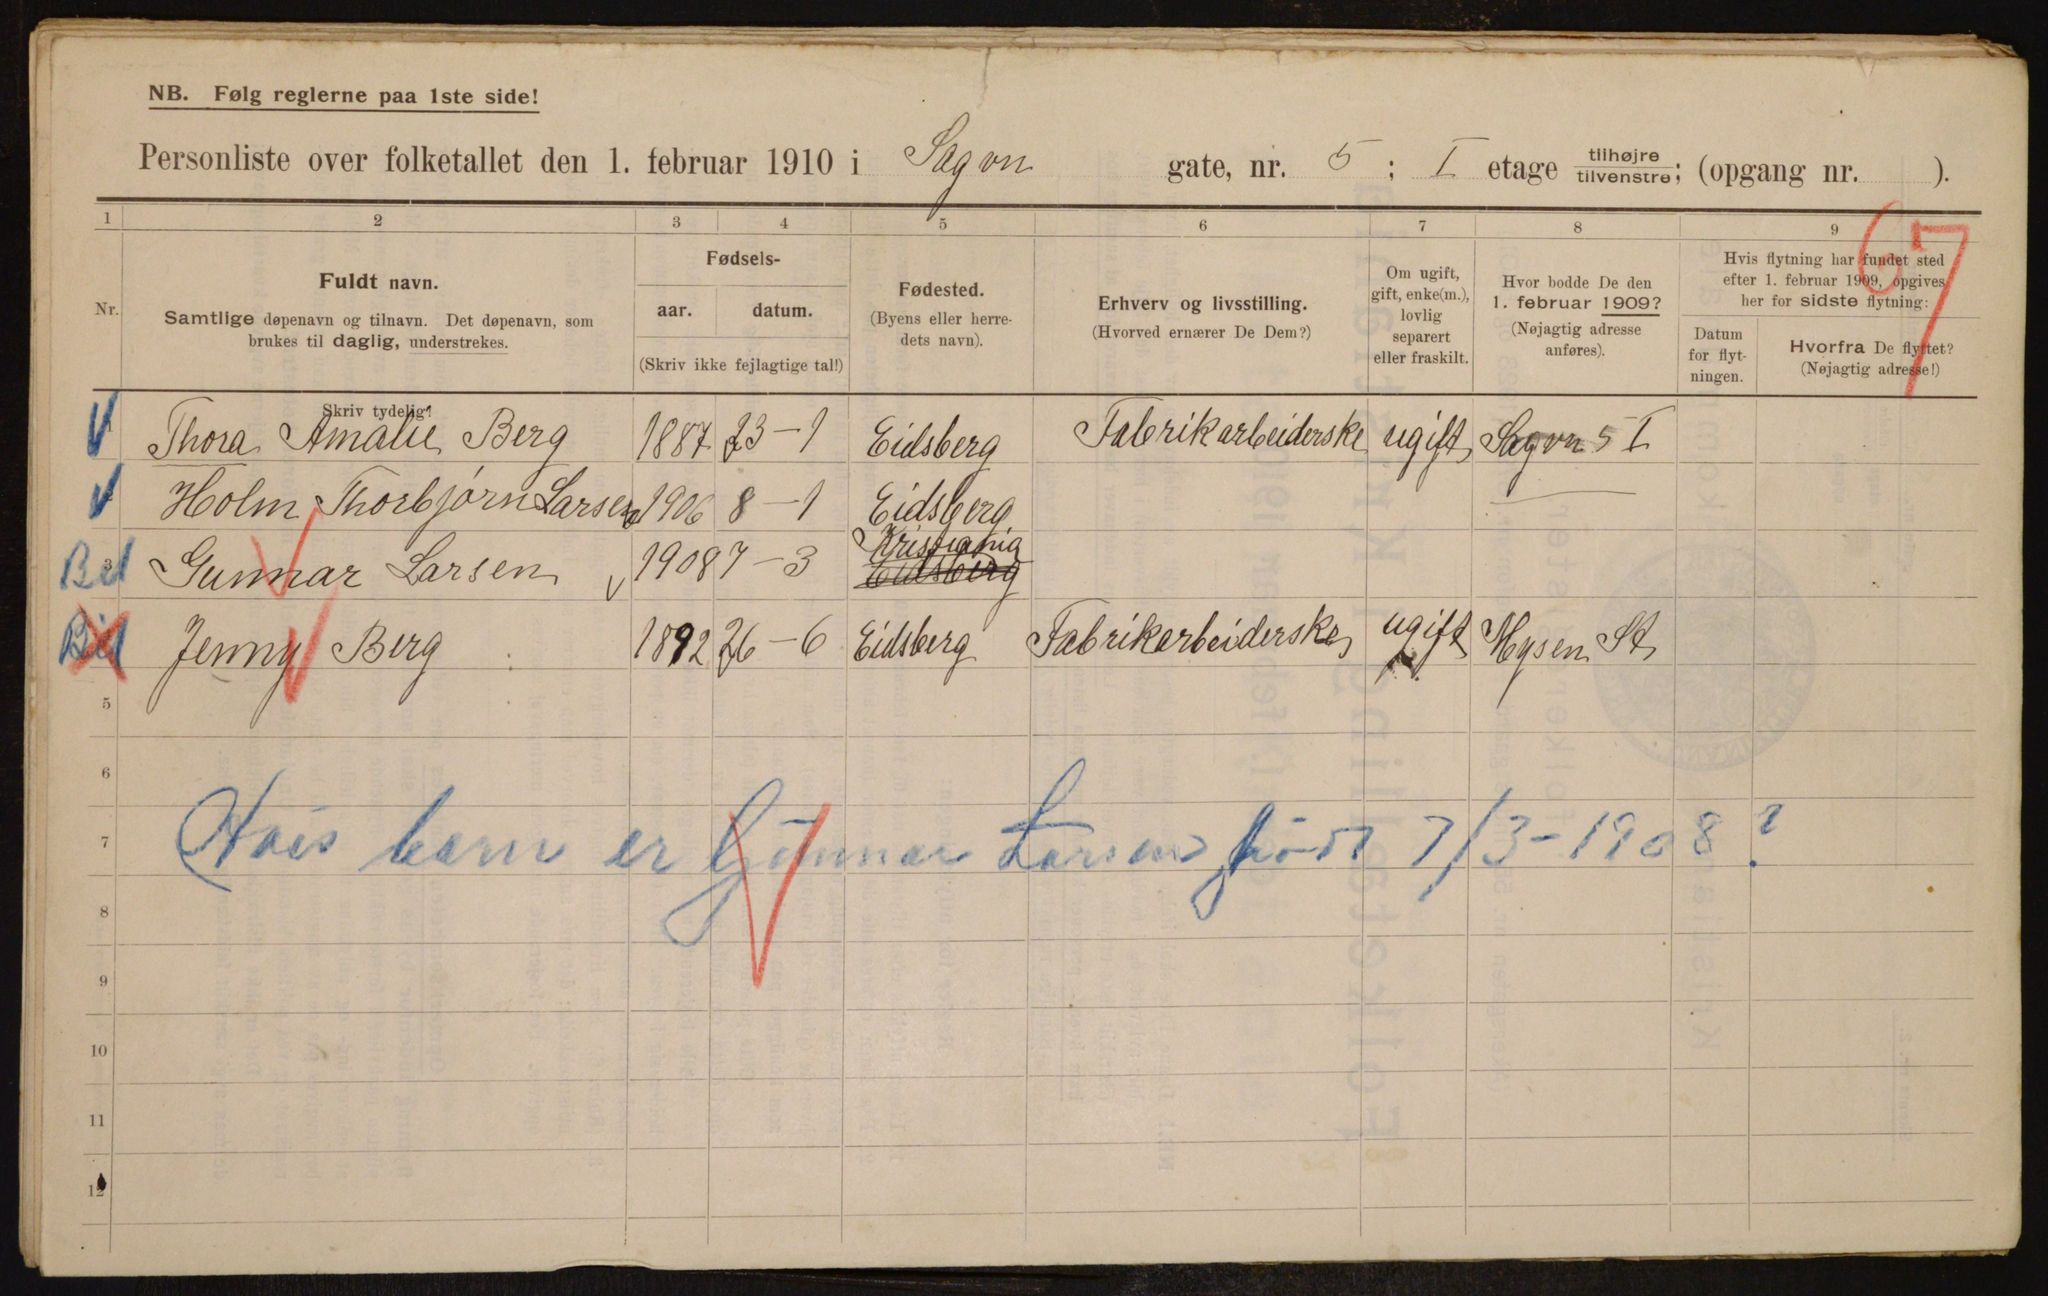 NB. Følg reglerne paa 1ste side!
Personliste over folketallet den 1. februar 1910 i Sagvn gate, nr. 5 ; I etage tilhøjre tilvenstre; (opgang nr. ).
1 2 3 4 5 6 7 8 9
Nr.
Fuldt navn.
Samtlige døpenavn og tilnavn. Det døpenavn, som
brukes til daglig, understrekes.
Skriv tydelig!
Fødsels-
aar. datum.
(Skriv ikke fejlagtige tal!)
Fødested.
(Byens eller herre-
dets navn).
Erhverv og livsstilling.
(Hvorved ernærer De Dem?)
Om ugift,
gift, enke(m.),
lovlig
separert
eller fraskilt.
Hvor bodde De den
1. februar 1909?
(Nøjagtig adresse
anføres).
Hvis flytning har fundet sted
efter 1. februar 1909, opgives
her for sidste flytning:
Datum
for flyt-
ningen.
Hvorfra De flyttet?
(Nøjagtig adresse!)
67
Thora Amalie Berg 1887 23-1 Eidsberg Fabrikarbeiderske ugift Sagvn 5 I
Holm Thorbjørn Larsen 1906 8-1 Eidsberg
Kristiania
Bet 3 Gunnar Larsen 1908 7-3 Eidsberg
Bet Jenny Berg 1892 26-6 Eidsberg Fabrikarbeiderske ugift Mysen St
5
6
7 Hvis barn er Gunnar Larsen født 7/3-1908?
8
9
10
11
12